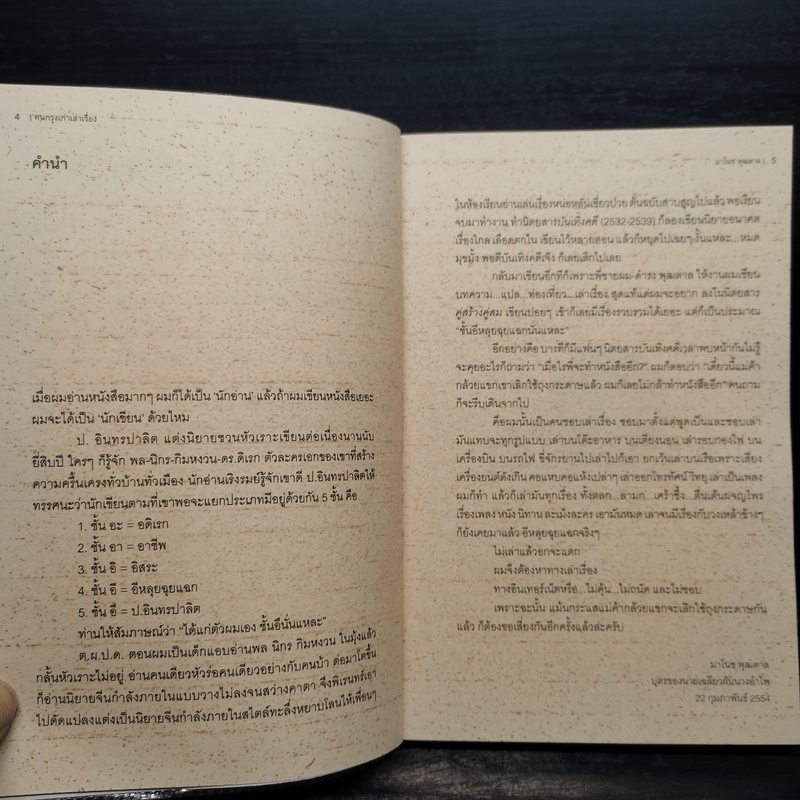 4 | คนกรุงเก่าเล่าเรื่อง
คำนำ
เมื่อผมอ่านหนังสือมากๆ ผมก็ได้เป็น ‘นักอ่าน’ แล้วถ้าผมเขียนหนังสือเยอะ
ผมจะได้เป็น ‘นักเขียน’ ด้วยไหม
ป. อินทรปาลิต แต่งนิยายชวนหัวเราะเขียนต่อเนื่องนานนับ
ยี่สิบปี ใครๆ ก็รู้จัก พล-นิกร-กิมหงวน-ดร.ดิเรก ตัวละครเอกของเขาที่สร้าง
ความครื้นเครงทั่วบ้านทั่วเมือง นักอ่านเริงรมย์รู้จักเขาดี ป.อินทรปาลิตให้
ทรรศนะว่านักเขียนตามที่เขาพอจะแยกประเภทมีอยู่ด้วยกัน 5 ชั้น คือ
1. ชั้น อะ = อดิเรก
2. ชั้น อา = อาชีพ
3. ชั้น อิ = อิสระ
4. ชั้น อี = อีหลุยฉุยแฉก
5. ชั้น อึ = ป.อินทรปาลิต
ท่านให้สัมภาษณ์ว่า “ได้แก่ตัวผมเอง ชั้นอึนั่นแหละ”
ต.ผ.ป.ด. ตอนผมเป็นเด็กแอบอ่านพล นิกร กิมหงวน ในมุ้งแล้ว
กลั้นหัวเราะไม่อยู่ อ่านคนเดียวหัวร่อคนเดียวอย่างกับคนบ้า ต่อมาโตขึ้น
ก็อ่านนิยายจีนกำลังภายในแบบวางไม่ลงจนสว่างคาตา จึงพิเรนทร์เอา
ไปดัดแปลงแต่งเป็นนิยายจีนกำลังภายในสไตล์ทะลึ่งหยาบโลนให้เพื่อนๆ
มาโนช พุฒตาล | 5
ในห้องเรียนอ่านเล่นเรื่องหน่อหลันเขียวป่วย ต้นฉบับสาบสูญไปแล้ว พอเรียน
จบมาทำงาน ทำนิตยสารบันเทิงคดี (2532-2539) ก็ลองเขียนนิยายอนาคต
เรื่องไกล เลือดตกใน เขียนไว้หลายตอน แล้วก็หยุดไปเฉยๆ งั้นแหละ...หมด
มุขมั้ง พอดีบันเทิงคดีเจ๊ง ก็เลยเลิกไปเลย
กลับมาเขียนอีกทีก็เพราะพี่ชายผม-ดำรง พุฒตาล ให้งานผมเขียน
บทความ...แปล...ท่องเที่ยว...เล่าเรื่อง สุดแท้แต่ผมจะอยาก ลงในนิตยสาร
คู่สร้างคู่สม เขียนบ่อยๆ เข้าก็เลยมีเรื่องรวบรวมได้เยอะ แต่ก็เป็นประมาณ
“ชั้นอีหลุยฉุยแฉกนั่นแหละ”
อีกอย่างคือ บางทีก็มีแฟนๆ นิตยสารบันเทิงคดีเวลาพบหน้ากันไม่รู้
จะคุยอะไรก็ถามว่า “เมื่อไรพี่จะทำหนังสืออีก?” ผมก็ตอบว่า “เดี๋ยวนี้แม่ค้า
กล้วยแขกเขาเลิกใช้ถุงกระดาษแล้ว ผมก็เลยไม่กล้าทำหนังสืออีก” คนถาม
ก็จะรีบเดินจากไป
คือผมนั้นเป็นคนชอบเล่าเรื่อง ชอบมาตั้งแต่พูดเป็นและชอบเล่า
มันแทบจะทุกรูปแบบ เล่าบนโต๊ะอาหาร บนเตียงนอน เล่ารอบกองไฟ บน
เครื่องบิน บนรถไฟ ขี่จักรยานไปเล่าไปก็เอา ยกเว้นเล่าบนเรือเพราะเสียง
เครื่องยนต์ดังเกิน คอแหบคอแห้งเปล่าๆ เล่าออกโทรทัศน์ วิทยุ เล่าเป็นเพลง
ผมก็ทำ แล้วก็เล่ามันทุกเรื่อง ทั้งตลก...ลามก...เศร้าซึ้ง...ตื่นเต้นผจญไพร
เรื่องเพลง หนัง นิทาน ละเม็งละคร เอามันหมด เล่าจนมีเรื่องกับวงเหล้าข้างๆ
ก็ยังเคยมาแล้ว อีหลุยฉุยแฉกจริงๆ
ไม่เล่าแล้วอกจะแตก
ผมจึงต้องหาทางเล่าเรื่อง
ทางอินเทอร์เน็ตหรือ...ไม่คุ้น...ไม่ถนัด และไม่ชอบ
เพราะฉะนั้น แม้นกระแสแม่ค้ากล้วยแขกจะเลิกใช้ถุงกระดาษกัน
แล้ว ก็ต้องขอเสี่ยงกันอีกครั้งแล้วล่ะครับ
มาโนช พุฒตาล
บุตรของนายเฉลียวกับนางอำไพ
22 กุมภาพันธ์ 2554